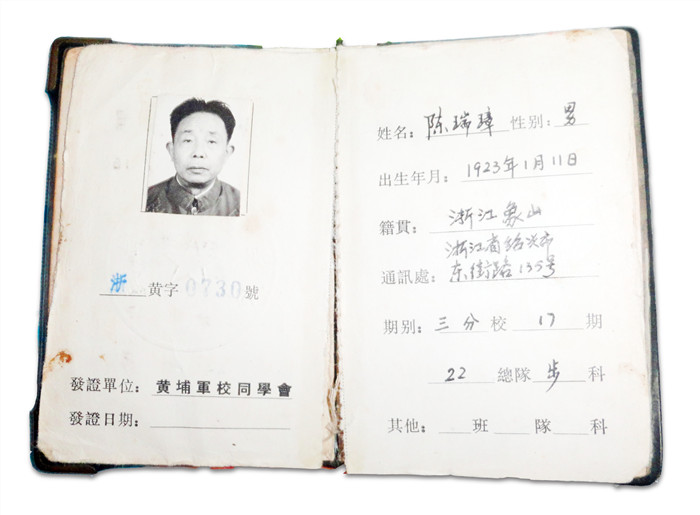 浙 黄字 0730 號
發證單位: 黄埔軍校同學會
發證日期:
姓名: 陈瑞璋 性别: 男
出生年月: 1923年1月11日
籍貫: 浙江象山
浙江省绍兴市
通訊處: 东街路135号
期别: 三分校 17 期
22 總隊 步 科
其他: 班 隊 科